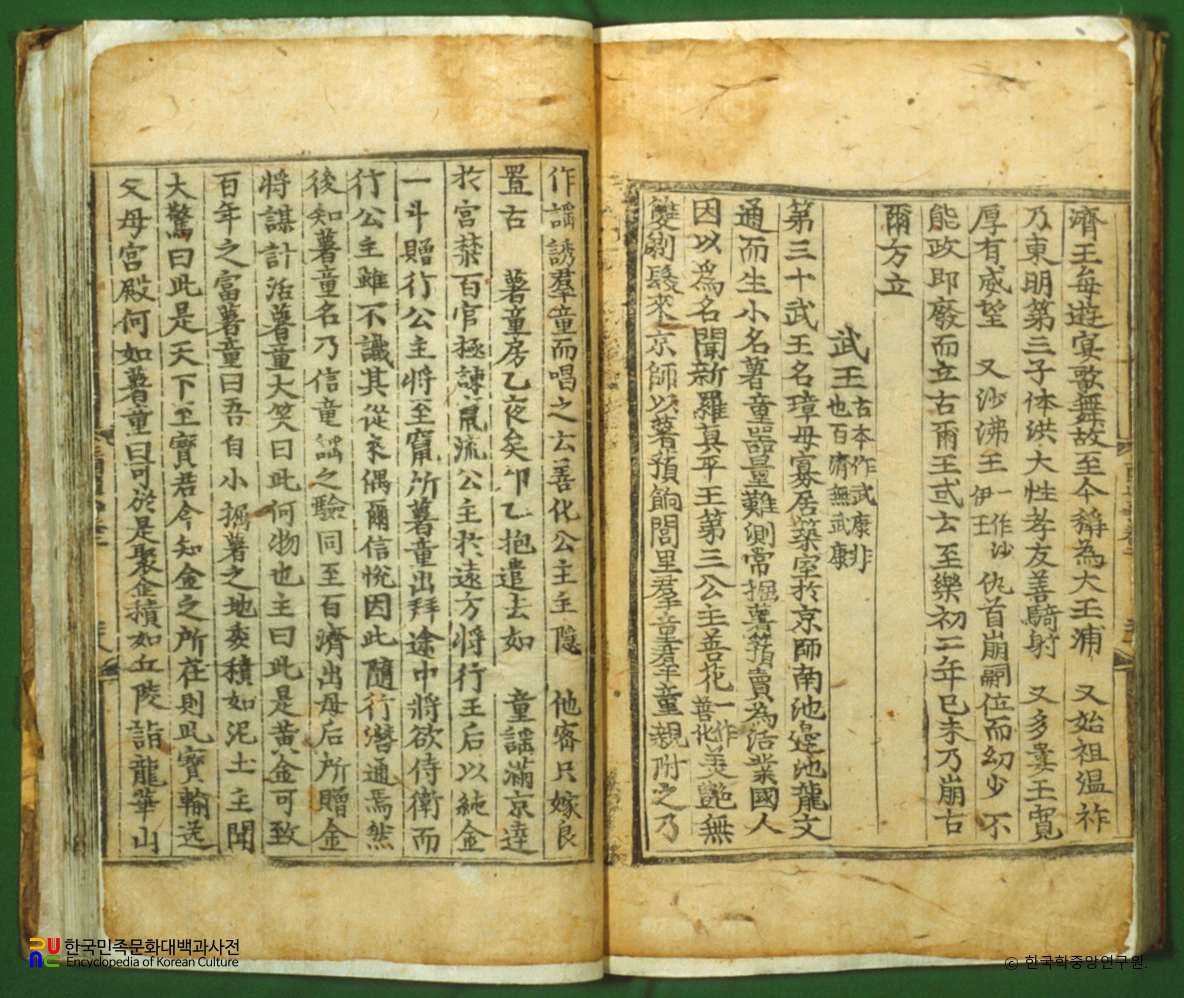 濟王每遊宴歌舞故至今稱為大王浦 又始祖溫祚
乃東明第三子体洪大性孝友善騎射 又多婁王寬
厚有威望 又沙沸王一作沙伊王仇首崩嗣位而幼少不
能政即廢而立古爾王或云至樂初二年己未乃崩古
爾方立
武王古本作武康非也百濟無武康
第三十武王名璋母寡居築室於京師南池邊池龍文
通而生小名薯童器量難測常掘薯蕷賣為活業國人
因以為名聞新羅真平王第三公主善花一作善化美艶無
雙剃髮來京師以薯蕷餉閭里羣童羣童親附之乃
作謠誘羣童而唱之云善化公主主隱 他密只嫁良
置古 薯童房乙夜矣卯乙抱遣去如 童謠滿京達
於宮禁百官極諫竄流公主於遠方將行王后以純金
一斗贈行公主將至竄所薯童出拜途中將欲侍衛而
行公主雖不識其從來偶爾信悅因此隨行潛通焉然
後知薯童名乃信童謠之驗同至百濟出母后所贈金
將謀計活薯童大笑曰此何物也主曰此是黃金可致
百年之富薯童曰吾自小掘薯之地委積如泥土主聞
大驚曰此是天下至寶君今知金之所在則此寶輸送
父母宮殿何如薯童曰可於是聚金積如丘陵詣龍華山
한국민족문화대백과사전
Encyclopedia of Korean Culture
© 한국학중앙연구원.